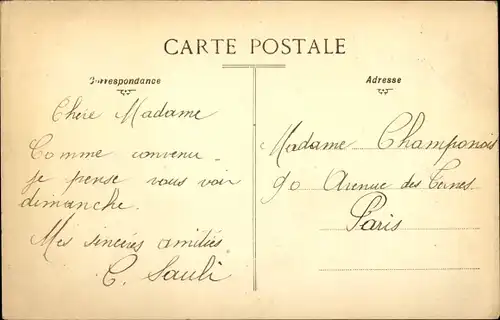 CARTE POSTALE
Correspondance
Adresse
Chère Madame
Comme convenu
je pense vous voir
dimanche.
Mes sincères amitiés
C. Sauli
Madame Champonois
90 Avenue des Ternes
Paris